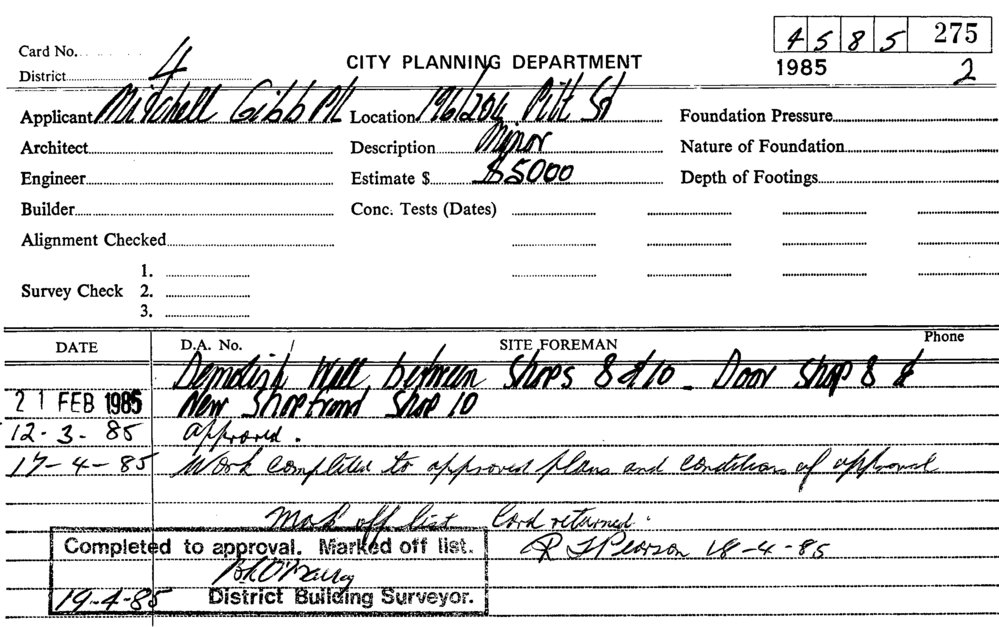 4 5 8 5 275
Card No.
CITY PLANNING DEPARTMENT
1985 2
District 4
Applicant Mitchell Gibb P/L Location 196/204 Pitt St Foundation Pressure
Architect Description Minor Nature of Foundation
Engineer Estimate $ $5000 Depth of Footings
Builder Conc. Tests (Dates)
Alignment Checked
1.
Survey Check 2.
3.
DATE D.A. No. SITE FOREMAN Phone
Demolish Wall between Shops 8 & 10 - Door Shop 8 &
21 FEB 1985 New Shopfront Shop 10
12-3-85 approved.
17-4-85 Work completed to approved plans and conditions of approval
Mark off list Card returned.
Completed to approval. Marked off list. R J Pearson 18-4-85
19-4-85 District Building Surveyor.